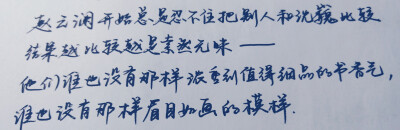 赵云澜开始总是忍不住把别人和沈巍比较
结果越比较越是索然无味——
他们谁也没有那样浓重到值得细品的书香气,
谁也没有那样眉目如画的模样.